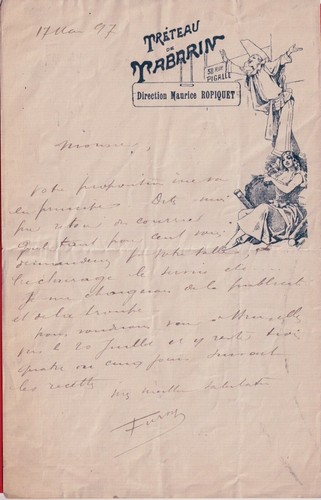 17 Mai 97
TRÉTEAU
DE
TABARIN
58 RUE
PIGALLE
Direction Maurice ROPIQUET
Monsieur,
votre proposition me va
en principe. Dites moi
par retour de courrier
pour cent vous
demandez votre salle,
l'éclairage le service
Je me chargerai de la publicité
et de la troupe
nous voudrions Bruxelles
vers le 20 Juillet et y rester trois
quatre ou cinq jours suivant
les recettes
mes meilleures salutations
Fursy